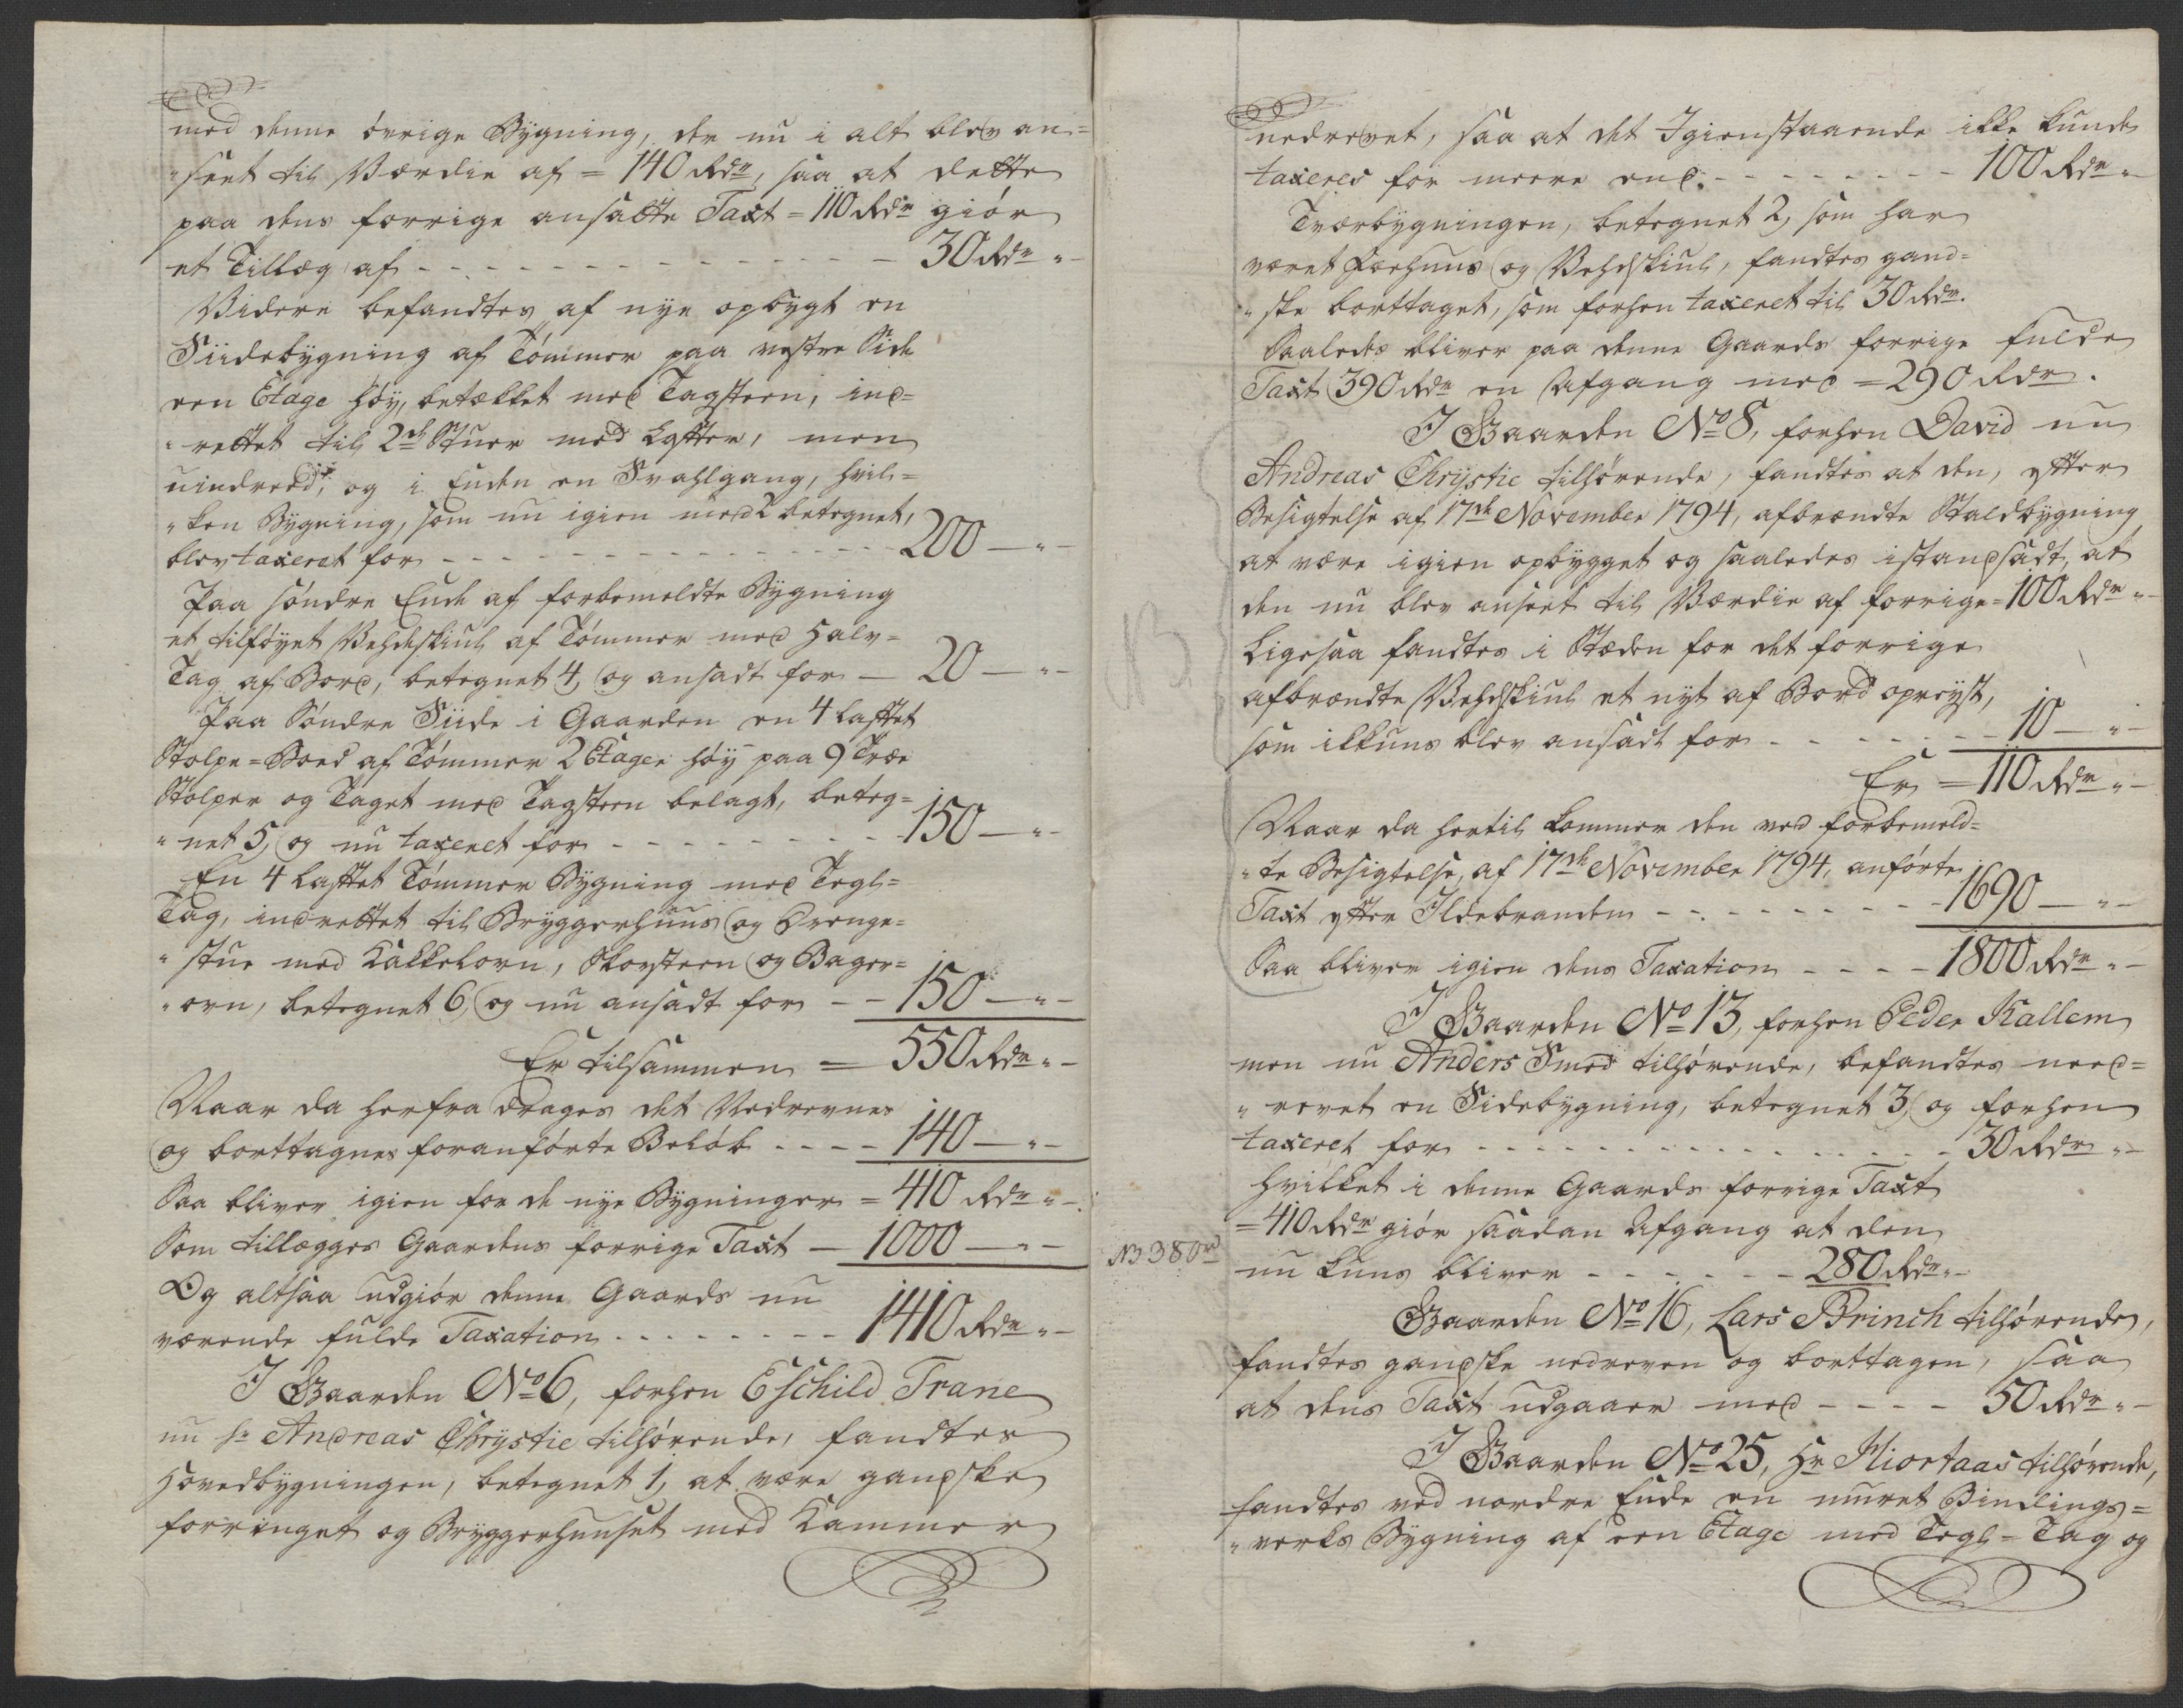 med denne övrige Bÿgning, der nu i alt blev an=
"seet til Værdie af = 140 Rdr, saa at dette
paa dens forrige ansatte Taxt = 110 Rdr giör
et Tillæg af - - - - - - - - - - - 30 Rdr "-
Videre befandtes af nye opbÿgt en
Siidebÿgning af Tömmer paa vestre Side
een Etage höÿ, betækket med Tagsteen, ind=
"rettet til 2de Stuer med Lofter, men
uindreed, og i Enden en Svahlgang, hvil=
"ken Bÿgning, som nu igien med 2 betegnet,
blev taxeret for - - - - - - - - - 200 - " -
Paa söndre Ende af forbemeldte Bÿgning
et tilföÿet Vehdskiul af Tömmer med Halv=
Tag af Bord, betegnet 4, og ansadt for - 20 - " -
Paa Söndre Siide i Gaarden en 4 laftet
Stolpe=Boed af Tömmer 2 Etager höÿ paa 9 Træe
Stolper og Taget med Tagsteen belagt, beteg=
"net 5, og nu taxeret for - - - - - - - 150 - " -
En 4 laftet Tömmer Bÿgning med Tegl=
Tag, indrettet til Brÿggerhuus og Drenge=
"stue med Kakkelovn, Skorsteen og Bager=
"ovn, betegnet 6, og nu ansadt for - - 150 - " -
Er tilsammen = 550 Rdr " -
Naar da herfra drages det Nedrevnes
og borttagnes foranförte Belöb - - - - 140 - " -
Saa bliver igien for de nye Bÿgninger = 410 Rdr " -
Som tillægges Gaardens forrige Taxt - 1000 - " -
Og altsaa udgiör denne Gaards nu
værende fulde Taxation - - - - - - - 1410 Rdr " -
I Gaarden No 6, forhen Eschild Trane
nu Hr Andreas Chrÿstie tilhörende, fandtes
Hovedbÿgningen, betegnet 1, at være gandske
forringet og Brÿggerhuuset med Kammer
nedrevet, saa at det Igienstaaende ikke kunde
taxeres for meere end - - - - - - - - 100 Rdr " -
Tværbÿgningen, betegnet 2, som har
været Fæehuus og Vehdskiul, fandtes gand=
"ske borttaget, som forhen taxeret til 30 Rdr.
Saaledes bliver paa denne Gaards forrige fulde
Taxt 390 Rdr en Afgang med = 290 Rdr.
I Gaarden No 8, forhen David nu
Andreas Chrÿstie tilhörende, fandtes at den, efter
Besigtelse af 17de November 1794, afbrændte Staldbÿgning
at være igien opbÿgget og saaledes istandsadt, at
den nu blev anseet til Værdie af forrige = 100 Rdr " -
Ligesaa fandtes i Stæden for det forrige
afbrændte Vehdskiul et nÿt af Bord opreÿst,
som ikkuns blev ansadt for - - - - - - - 10 - " -
Er = 110 Rdr " -
Naar da hertil kommer den ved forbemeld=
"te Besigtelse, af 17de November 1794, anförte
Taxt efter Ildebranden - - - - - - - - 1690 - " -
Saa bliver igien dens Taxation - - - - 1800 Rdr " -
I Gaarden No 13, forhen Peder Kallem
men nu Anders Smed tilhörende, befandtes need=
"revet en Sidebÿgning, betegnet 3, og forhen
taxeret for - - - - - - - - - - - 30 Rdr " -
hvilket i denne Gaards forrige Taxt
= 410 Rdr giör saadan Afgang at den
NB 380 rd
nu kuns bliver - - - - - - 280 Rdr " -
Gaarden No 16, Lars Brinch tilhörende,
fandtes gandske nedreven og borttagen, saa
at dens Taxt udgaaer med - - - - 50 Rdr " -
I Gaarden No 25, Hr Hiortaas tilhörende,
fandtes ved nordre Ende en muret Bindings=
"verks Bÿgning af een Etage med Tegl=Tag og